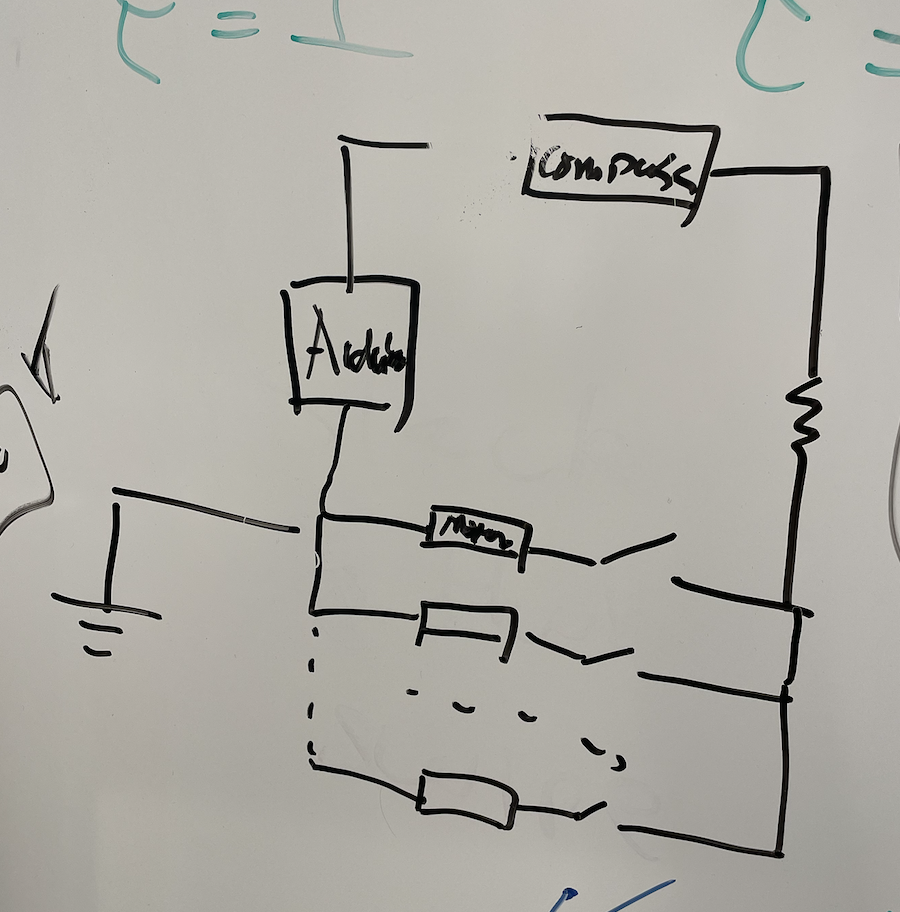 τ = 1
τ =
Compass
Arduino
Motor